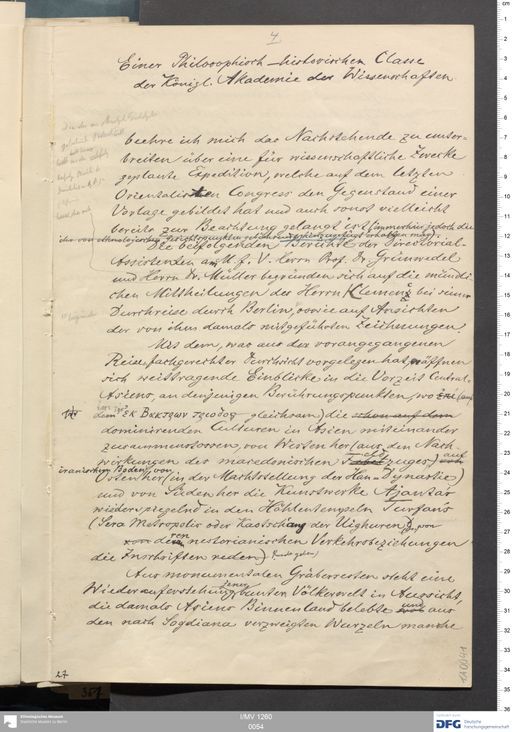 4.
Einer Philosophisch-historischen Classe
der Königl. Akademie der Wissenschaften
beehre ich mich das Nachstehende zu unter-
breiten über eine für wissenschaftliche Zwecke
geplante Expedition, welche auf dem letzten
Orientalisten Congress den Gegenstand einer
Vorlage gebildet hat und auch sonst vielleicht
bereits zur Beachtung gelangt ist (immerhin jedoch die
ihr von ethnologischen Gesichtspunkten
Die beifolgenden Berichte der Directorial-
Assistenten am M. f. V. Herrn Prof. Dr. Grünwedel
und Herrn Dr. Müller begründen sich auf die mündli-
chen Mittheilungen des Herrn Klementz bei seiner
Durchreise durch Berlin, sowie auf Ansichten
der von ihm damals mitgeführten Zeichnungen.
Mit dem, was aus der vorangegangenen
Reise fachgerechter Durchsicht vorgelegen hat, eröffnen
sich weittragende Einblicke in die Vorzeit Central-
Asiens, an denjenigen Berührungspunkten, wo (auf
dem gleichsam) die schon auf dem
dominirenden Culturen in Asien miteinander
zusammenstossen, von Westen her (aus den Nach-
wirkungen des macedonischen zuges) auf
iranischem Boden, von
Osten her (in der Machtstellung der Han-Dynastie)
und von Süden her die Kunstwerke Ajantas
wiederspiegelnd in den Höhlentempeln Turfans
(Sera Metropolis oder Kaotschang der Uighuren), von
deren nestorianischen Verkehrsbeziehungen
die Inschriften reden)
Aus monumentalen Gräberresten steht eine
Wiederauferstehung jener bunten Völkerwelt in Aussicht,
die damals Asiens Binnenland belebte und aus
den nach Sogdiana verzweigten Wurzeln manche
27
357
IA0041
Ethnologisches Museum
Staatliche Museen zu Berlin
I/MV 1260
0054
DFG Deutsche
Forschungsgemeinschaft